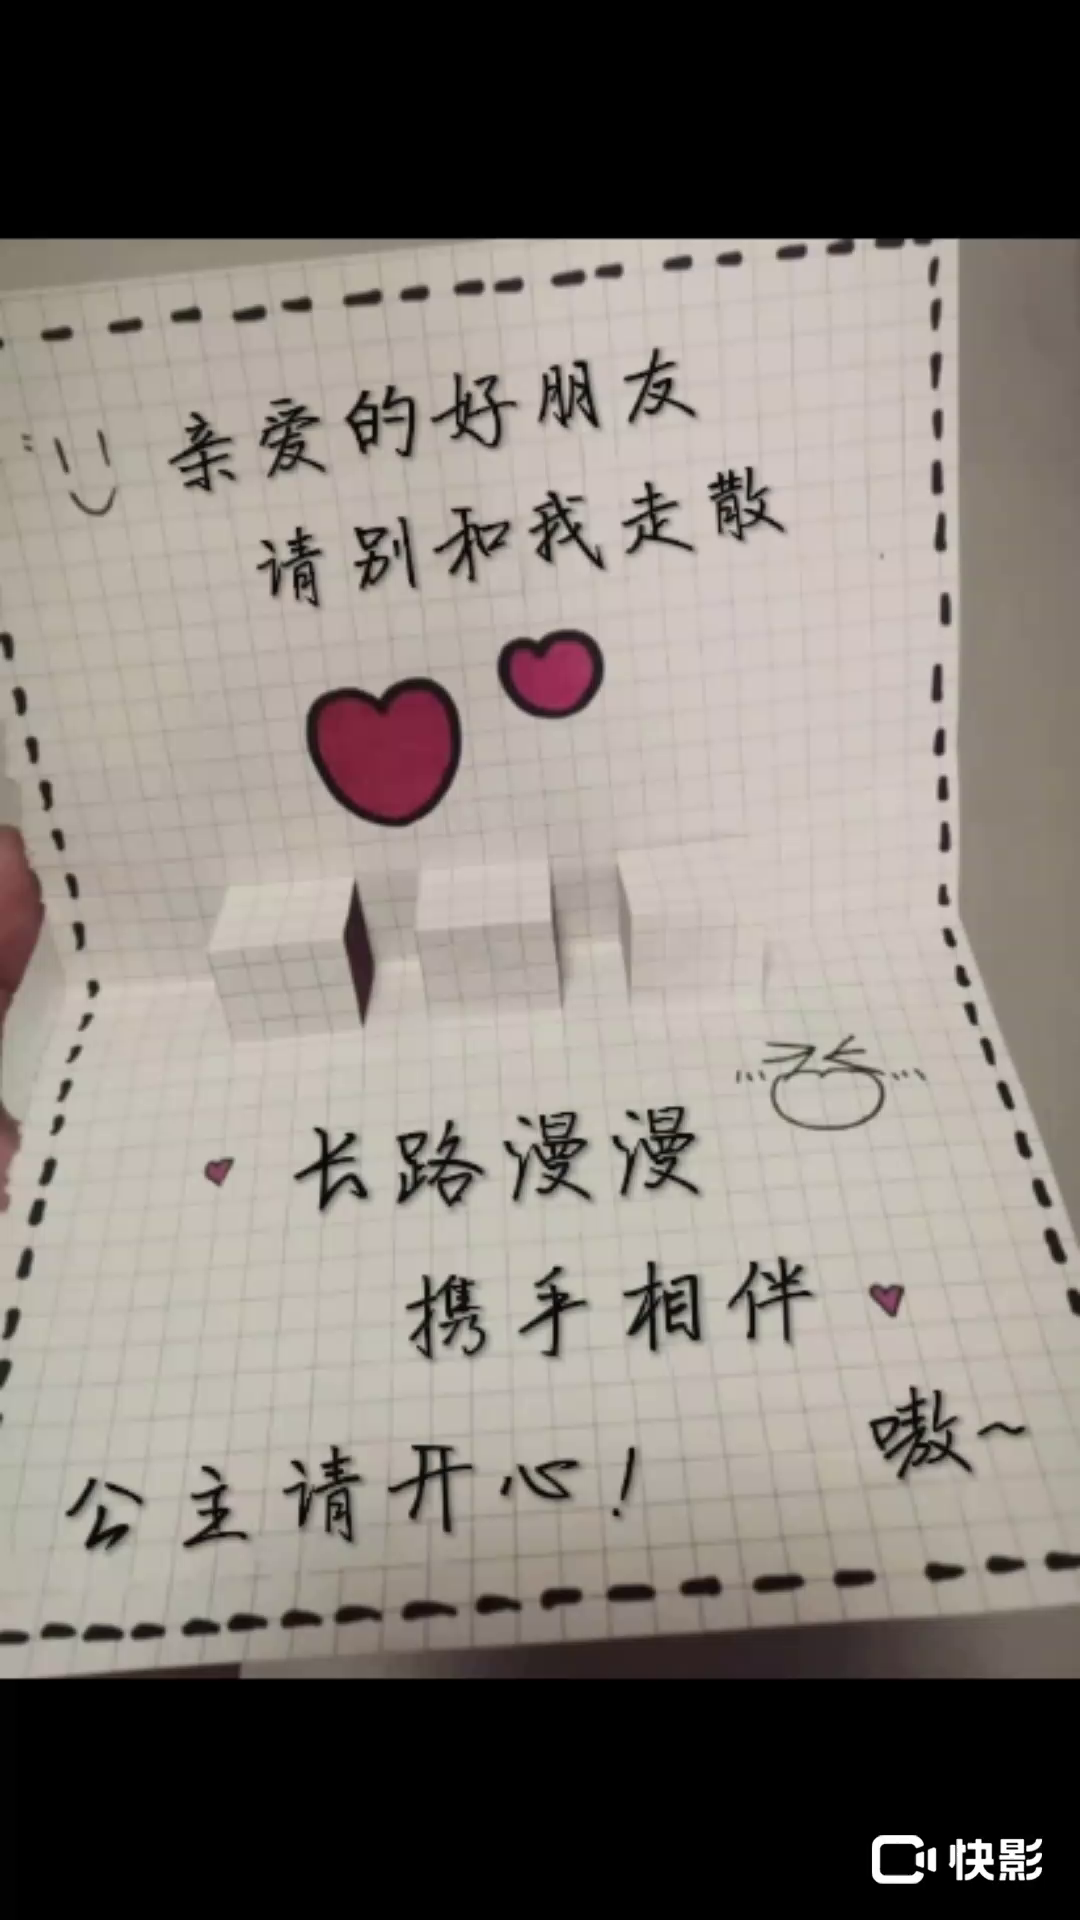 亲爱的好朋友
请别和我走散
长路漫漫
携手相伴
嗷~
公主请开心！
快影